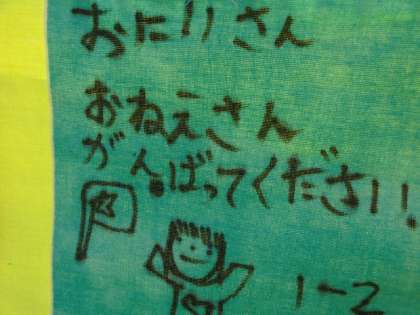 おにいさん
おねえさん
がんばってください!
1-2